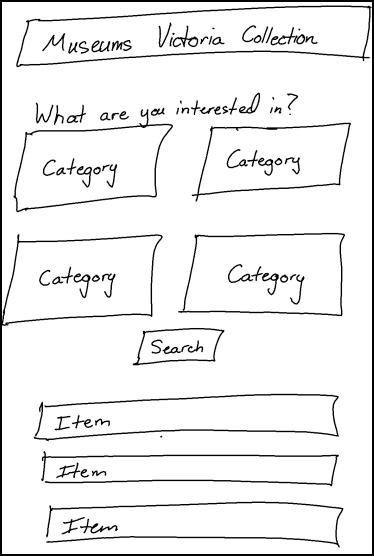 Museums Victoria Collection
What are you interested in?
Category
Category
Category
Category
Search
Item
Item
Item